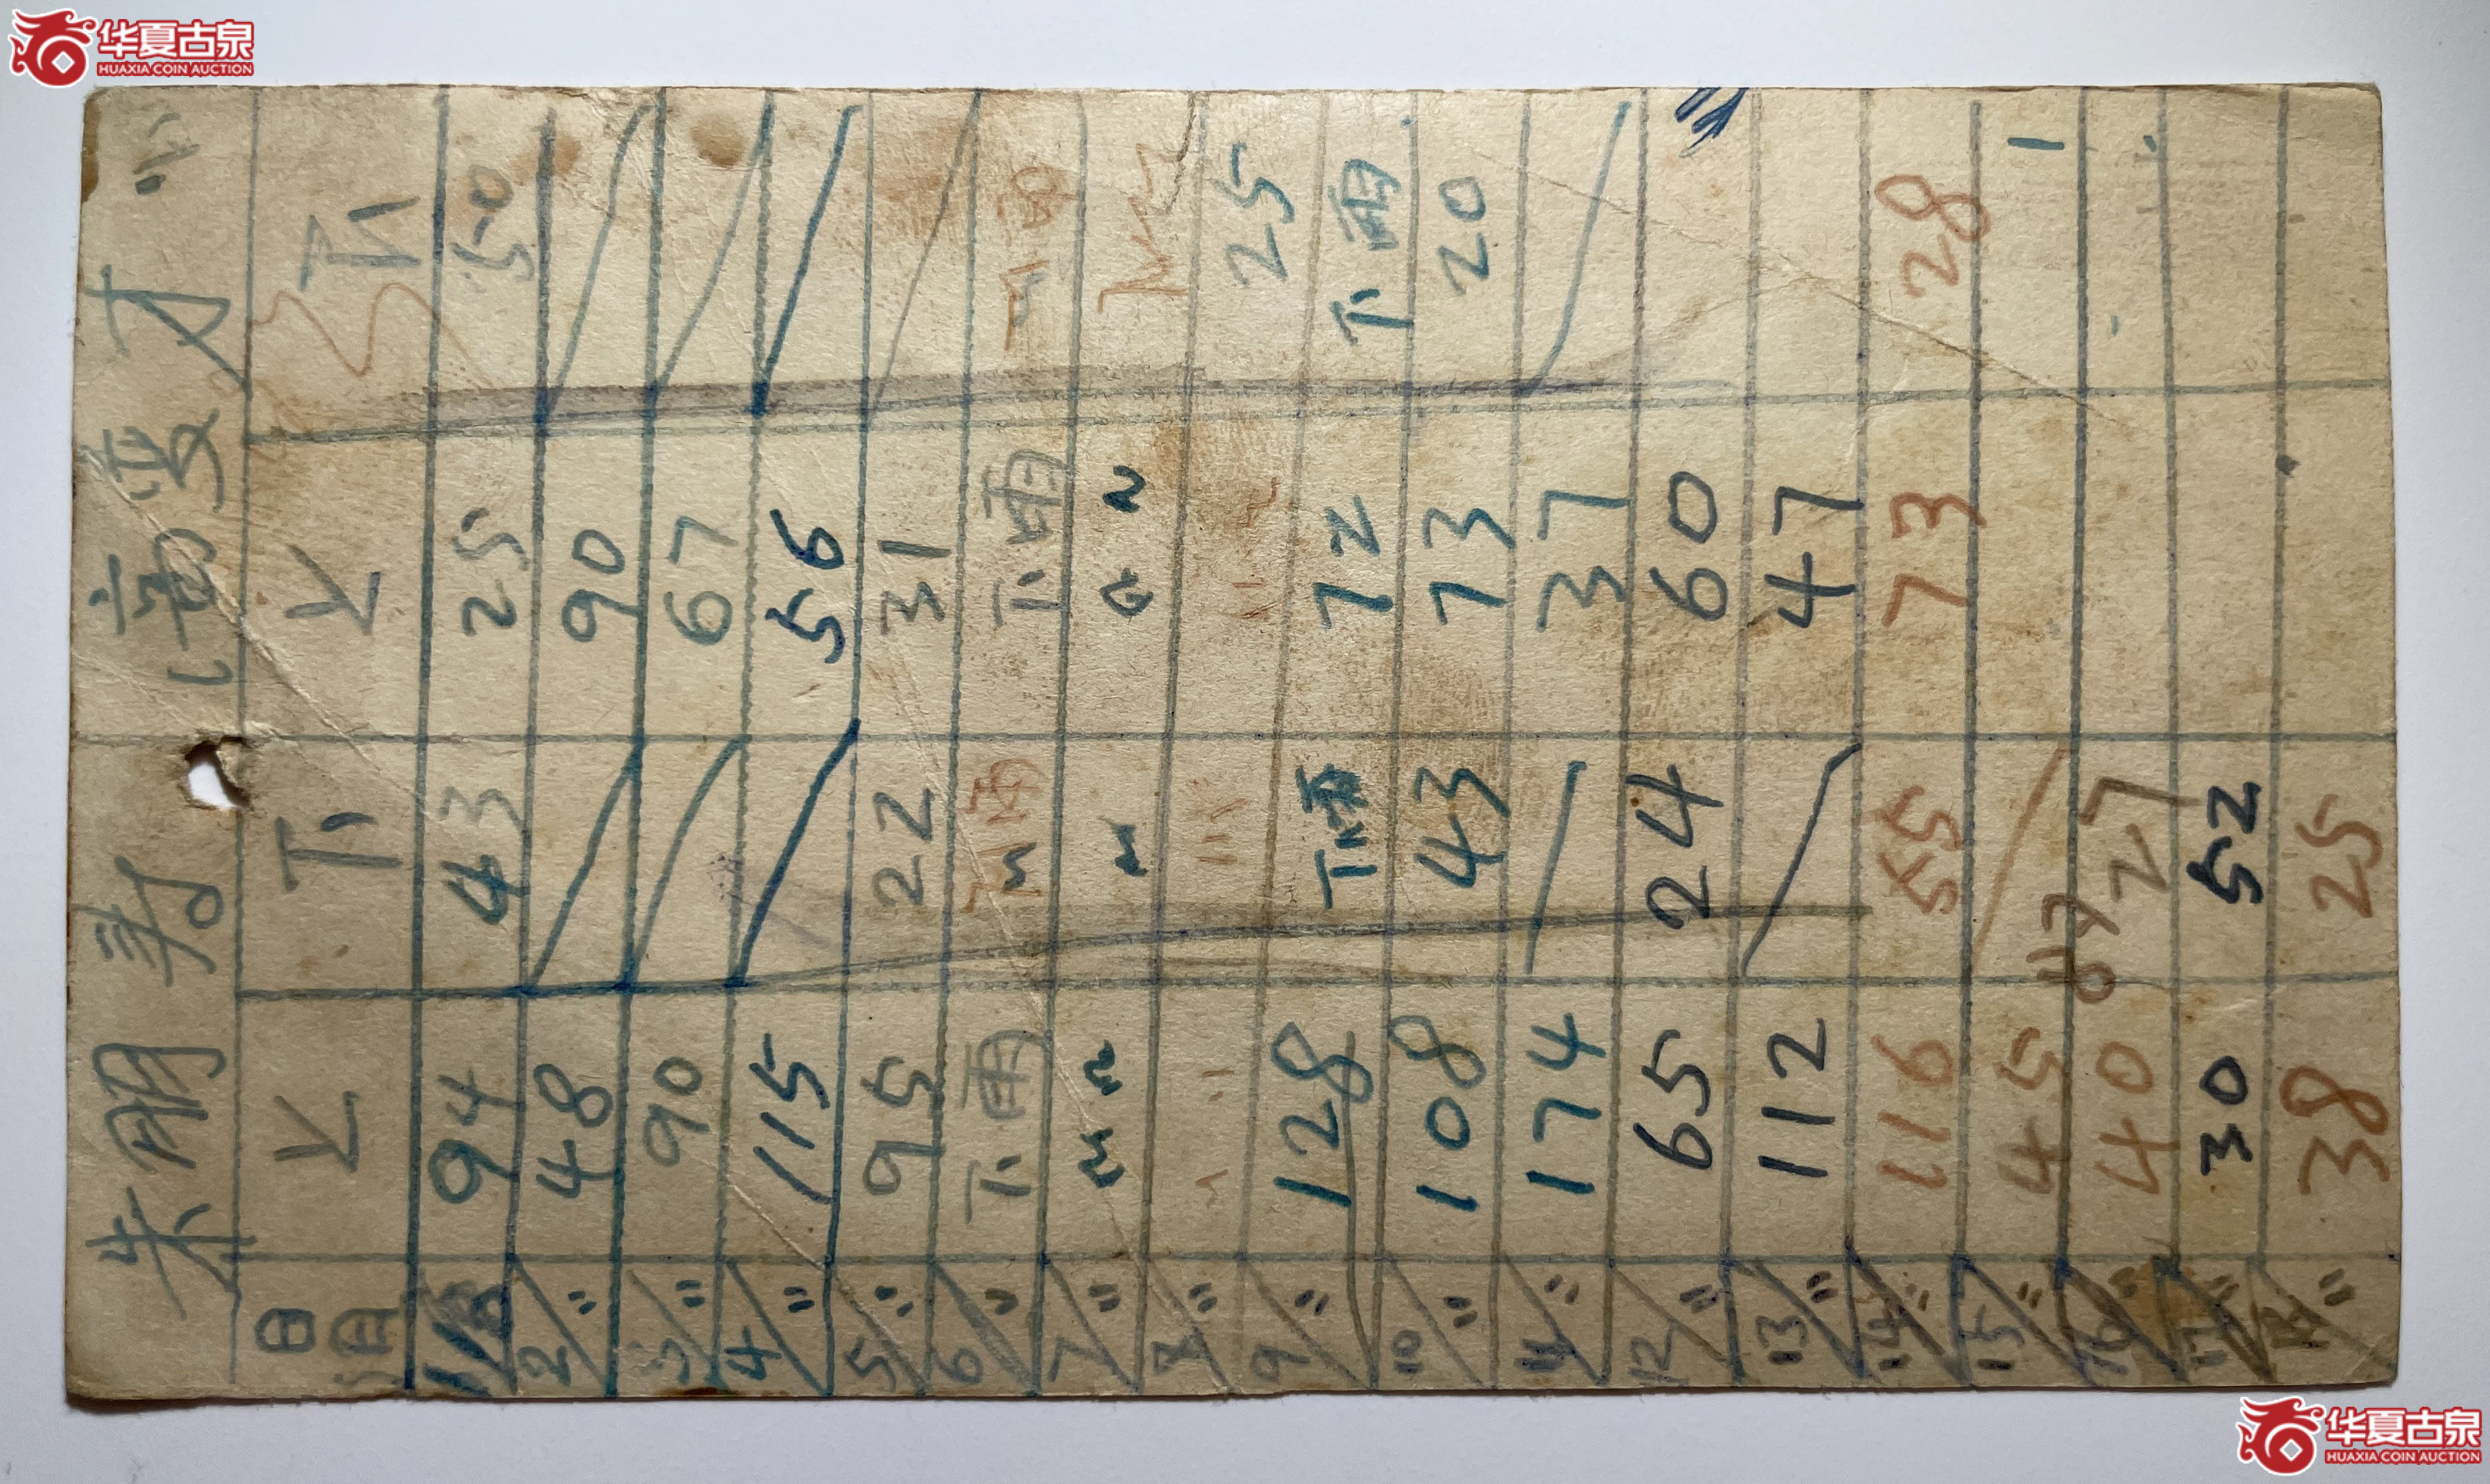 华夏古泉
HUAXIA COIN AUCTION
朱明寿
日 上 下 上 下
94 43 25 50
2/" 48 90
3/" 90 67
4/" 115 56
5/" 95 22 31
6/" 下雨 下雨
7/" " "
8/" " "
9/" 128 下雨 72 下雨
25
10/" 108 43 73 20
11/" 174 37
12/" 65 24 60
13/" 112 47
14/" 116 55 73 28
15/" 45
16/" 40 27
87
17/" 30 52
18/" 38 25
华夏古泉
HUAXIA COIN AUCTION